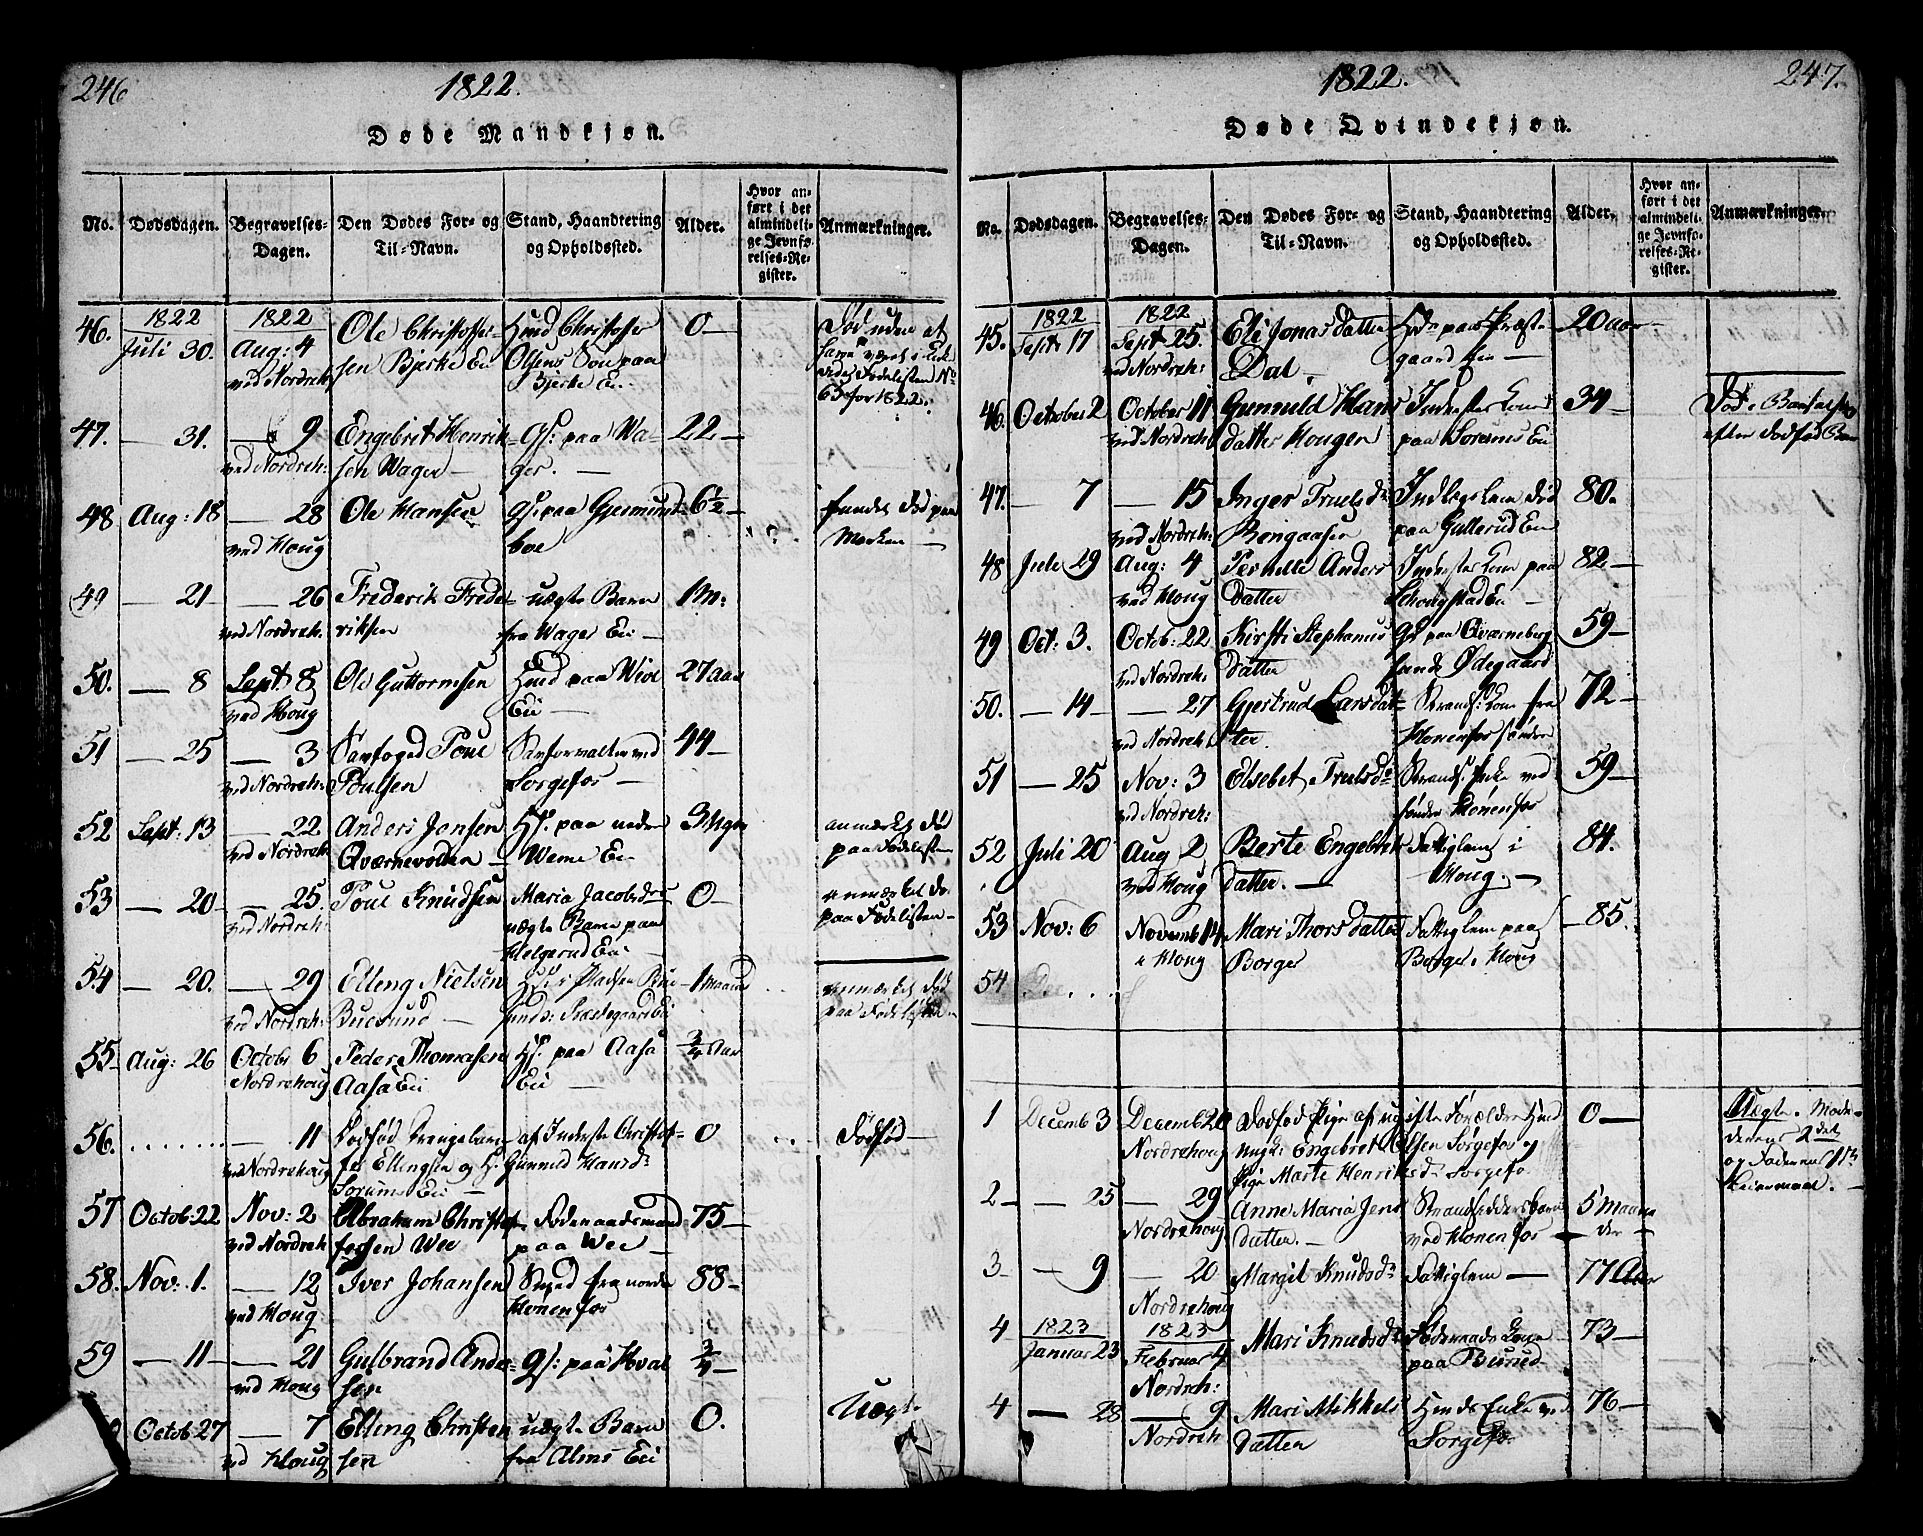 246
1822.
Døde Mandkjøn.
No.
Dødsdagen.
Begravelses-
Dagen.
Den Dødes For- og
Til-Navn.
Stand, Haandtering
og Opholdssted.
Alder.
Hvor an-
ført i det
almindeli-
ge Jevnfø-
relses-Re-
gister.
Anmærkninger.
46.
1822
Juli 30.
1822
Aug: 4
ved Nordreh:
Ole Christoffer-
sen Bjerke Ei
Huusmd Christoffer
Olsens Søn paa
Bjerke Ei
0
Død uden at
63 for 1822.
47.
31.
9
ved Nordreh:
Engebret Henrik-
sen Wager
Gs: paa Wa-
ger.
22
48
Aug: 18
28
ved Houg
Ole Hansen
Gs: paa Gjermund-
boe
6½
funden død paa
Marken
49
21
26
ved Nordreh.
Frederik Frede-
riksen
uægte Barn
fra Wager Ei
1 M:
50.
8
Sept 8
ved Houg
Ole Guttormsen
Huusmd paa Wiul
Ei
27 aar
51
25
3
ved Nordreh:
Poul
Poulsen
Sorgefos
44
52
Sept: 13
22
ved Nordreh.
Anders Jonsen
Qværnevolden
Hs. paa nedre
Weme Ei
3 Uger
anmærket død
paa Fødelisten
53
20
25.
ved Nordreh:
Poul Knudsen
Maria Jacobsdrs
uægte Barn paa
Helgerud Ei
0
anmærket dø.
paa Fødelisten
54
20.
29
ved Nordreh:
Elling Nielsen
Buesund
sund: Præstegaards Ei
1 Maaned
anmærket død
paa Fødelisten
55
Aug: 26
Octobr 6
Nordrehoug
Peder Thomasen
Aasa Ei
Hs. paa Aasa
Ei
¾ Aar
56.
11
ved Nordrehoug
Dødfød Drengebarn
af Inderste Christof-
fer Ellingsen og H. Gunnild Hansdr
Sorums Ei
0
Dødfød
57
Octob: 22
Nov: 2
ved Nordreh
Abraham Christof-
fersen Wee
Føderaadsmand
paa Wee
75
58.
Nov: 1.
12
ved Houg
Iver Johansen
fra nordre
Hønenfos
88
59
11
21
ved Houg
Gulbrand Ander-
sen
Gs: paa Hval
¾
Octob 27
7
ved Houg
Elling Christen-
sen
uægte Barn
fra Alms Ei
0.
Uægte
1822.
247.
Døde Qvindekjøn.
No.
Dødsdagen.
Begravelses-
Dagen.
Den Dødes For- og
Til-Navn.
Stand, Haandtering
og Opholdssted.
Alder.
Hvor an-
ført i det
almindeli-
ge Jevnfø-
relses-Re-
gister.
Anmærkninger.
45.
1822
Septr 17
1822
Sept 25.
ved Nordreh:
Eli Jonasdatter
Dal
paa Præste-
gaards Ei
20 aar
46.
October 2
October 11
ved Nordreh:
Gunnild Hans
datter Hougen
Inderstes Kone
paa Sorums Ei
34
Død i Barselseng
efter dødfød Barn
47.
7
15
ved Nordreh:
Inger Truelsdr
Ringaasen
Indlagslem død
paa Gullerud Ei
80.
48
Juli 29
Aug: 4
ved Houg
Pernille Anders
datter
Inderstes Kone paa
Schougstad Ei
82
49
Oct: 3.
Octob: 22
ved Nordreh.
Kirsti Stephanus
datter
Gs paa Qværneberg
sunds Ødegaard
59
50.
14
27
ved Nordreh:
Gjertrud Larsdat-
ter.
Strands: Kone fra
Hønenfos søndre
72
51
25
Nov: 3
ved Nordreh:
Elsebet Truelsdr
Strands: Enke ved
søndre Hønenfos
59
52
Juli 20
Aug 2
ved Houg
Berte Engebrets
datter.
Fattiglem i
Houg.
84.
53
Nov: 6
Novemb 14
i Houg
Mari Thorsdatter
Borger
Fattiglem paa
Borger i Houg
85.
54
1
Decemb 3
Decemb 20
Nordrehoug
Dødfød Pige af ugifte Forældre
Engebret Olsen Sorgefos og
Pige Marte Henriksdr Sorgefos
0
Uægte. Mode-
derens 2det
og Faderens 1ste
Leiermaal.
2
25
29
Nordrehoug
Anne Maria Jens
datter.
Strandsidders barn
ved Hønenfos
5 Maane
der
3
9
20
Nordrehoug
Margit Knudsdr
Fattiglem
77 Aar
4
1823
Januar 23
1823
Februar 4
Nordreh:
Mari Knudsdr
Føderaads Kone
paa Busund
73
4
28
9
Nordreh
Mari Mikkels
datter
Huusmds Enke ved
Sorgefos
76